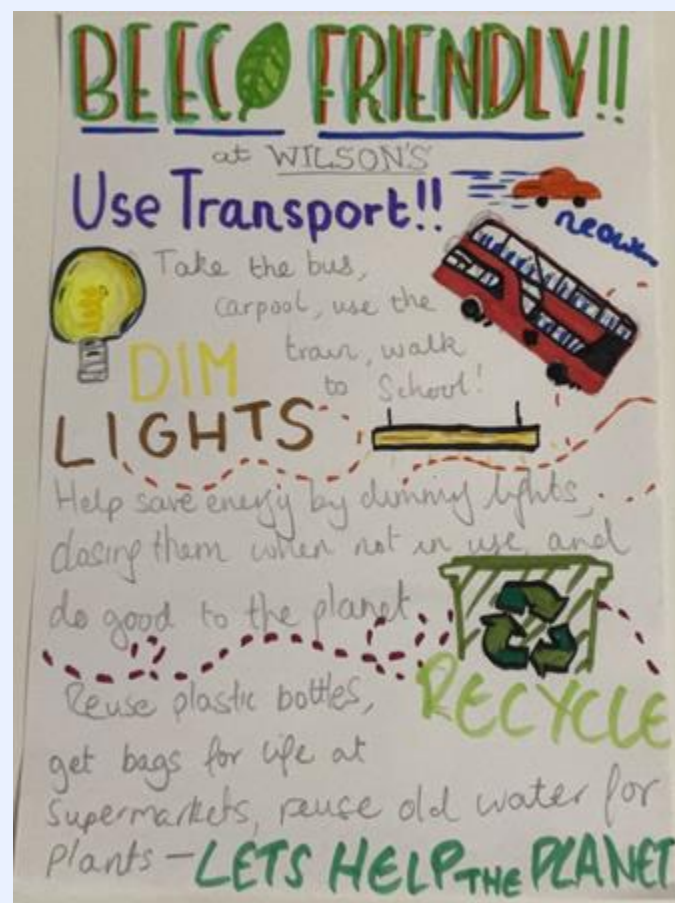 BE ECO FRIENDLY!!
at WILSON'S
Use Transport!!
neoww
Take the bus,
carpool, use the
train, walk
to School!
DIM
LIGHTS
Help save energy by dimming lights,
closing them when not in use, and
do good to the planet
RECYCLE
Reuse plastic bottles,
get bags for life at
supermarkets, reuse old water for
plants – LETS HELP THE PLANET